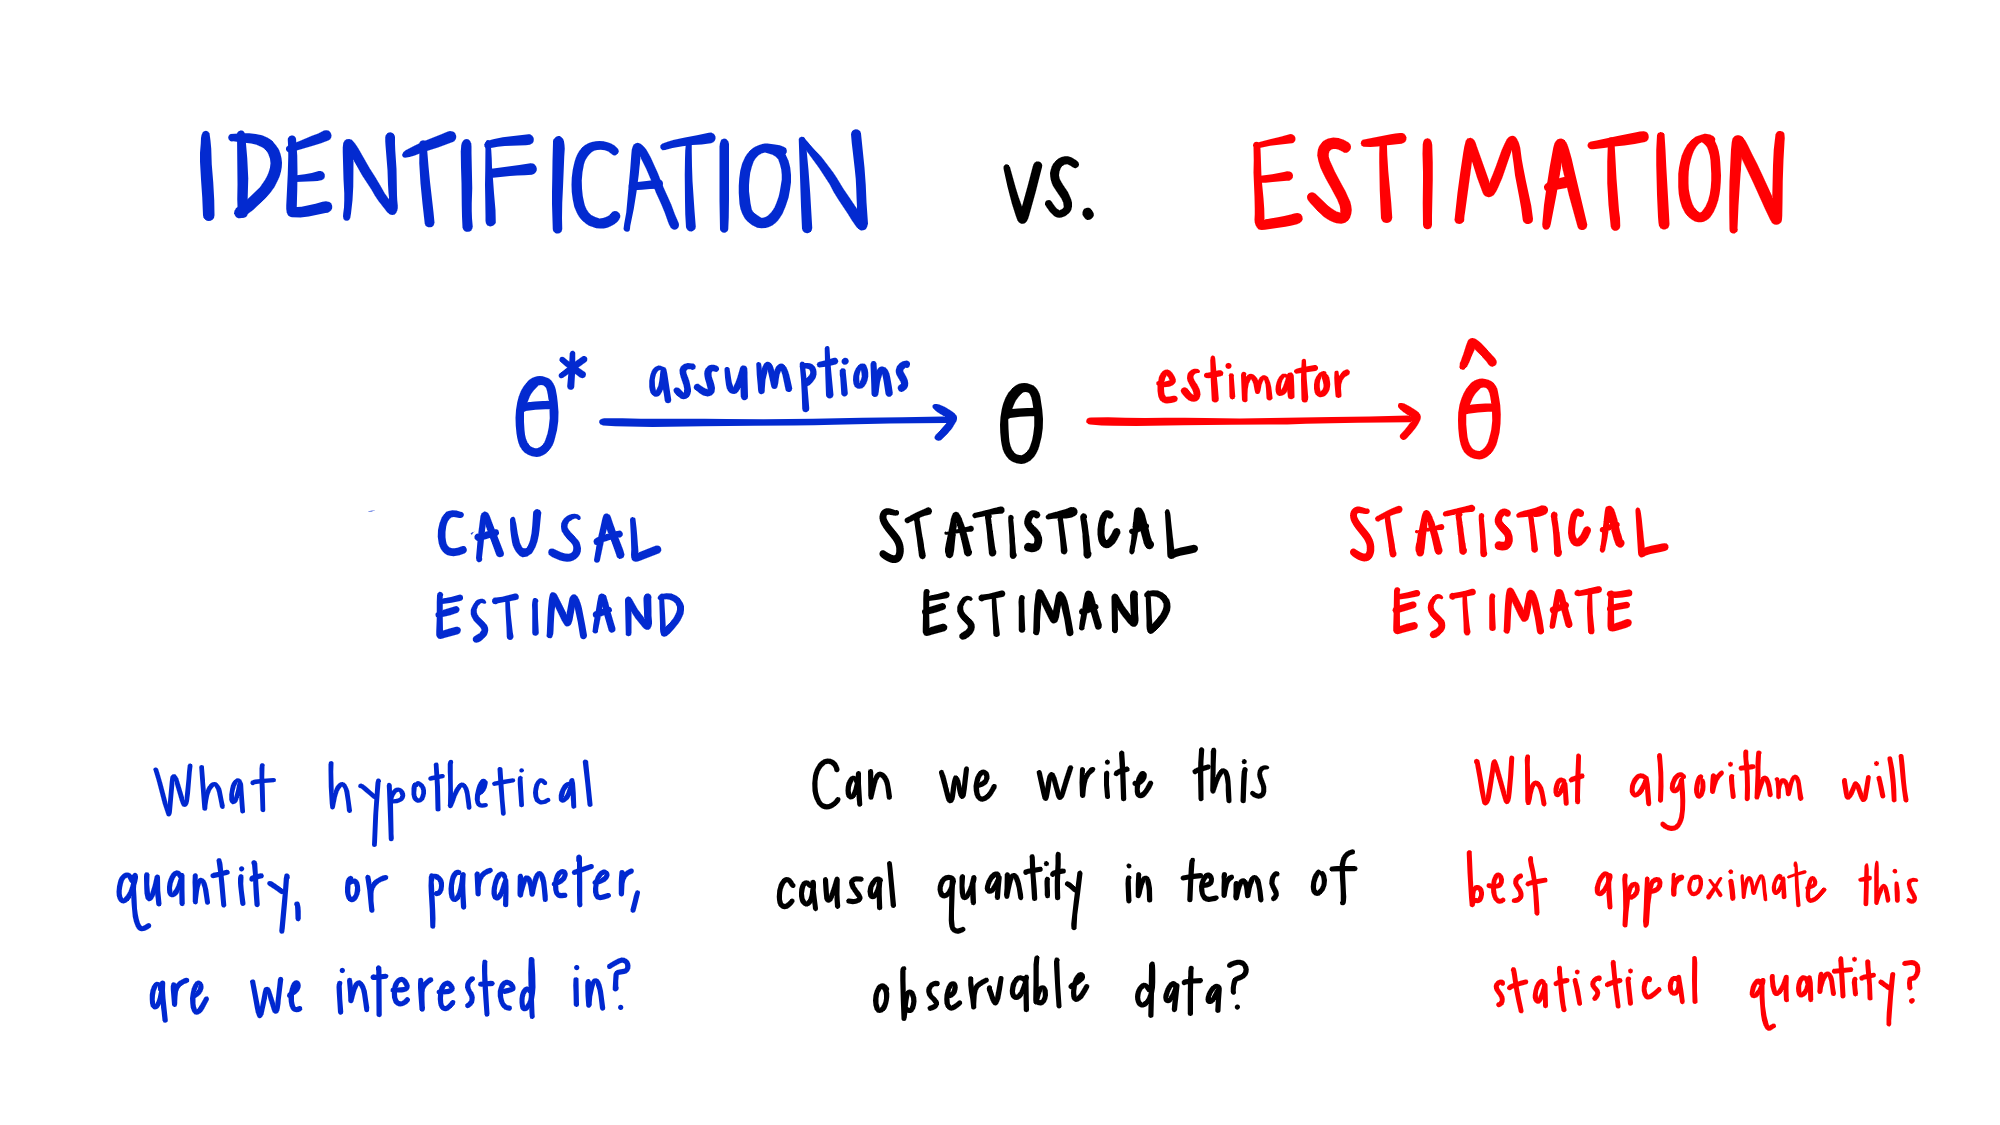 IDENTIFICATION vs. ESTIMATION
θ* assumptions θ estimator θ̂
CAUSAL
ESTIMAND
STATISTICAL
ESTIMAND
STATISTICAL
ESTIMATE
What hypothetical
quantity, or parameter,
are we interested in?
Can we write this
causal quantity in terms of
observable data?
What algorithm will
best approximate this
statistical quantity?